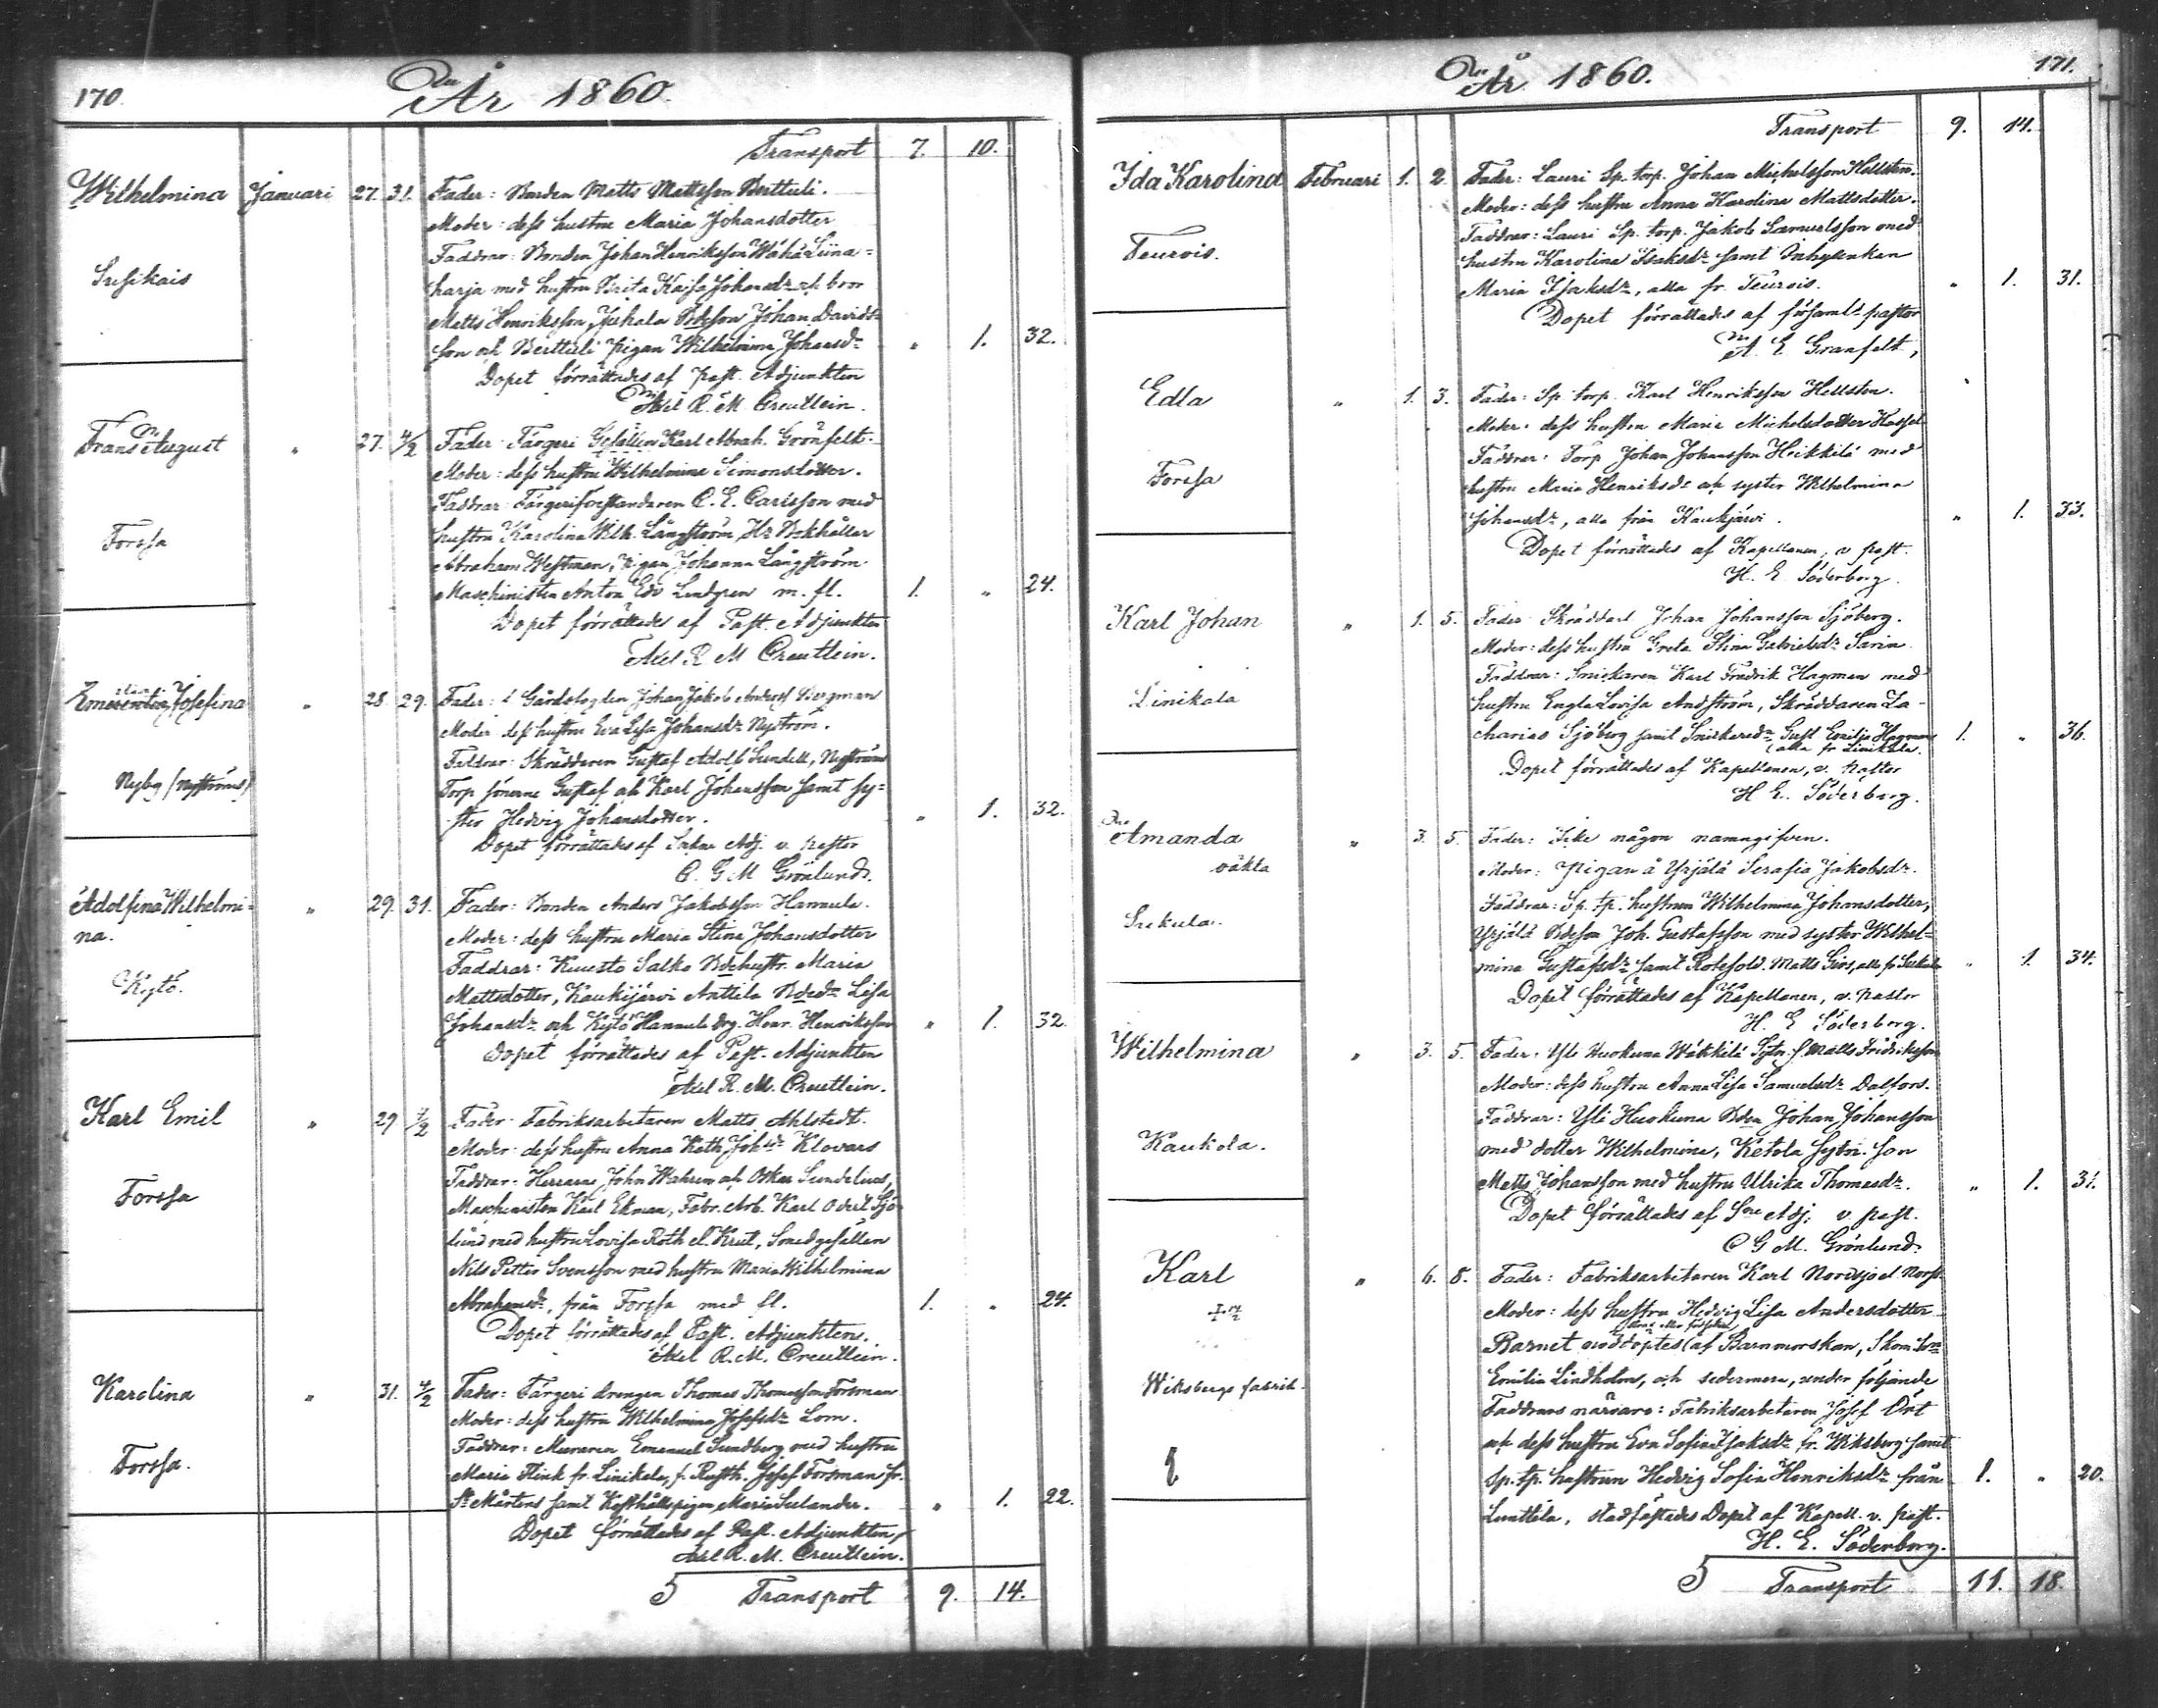 170.
År 1860.
Transport 7. 10.
Wilhelmina Januari 27. 31. Fader: Bonden Matts Mattsson Berttuli.
Moder: dess hustru Maria Johansdotter
Susikais
Faddrar: Bonden Johan Henriksson Wähä Liina-
harja med hustru Brita Kajsa Johansdr och bror
Matts Henriksson, Bdeson Johan Davids-
son och Berttuli pigan Wilhelmina Johansdr " 1. 32.
Dopet förrättades af Past. Adjunkten
Axel R. M. Creutlein.
Frans August " 27. 4/2 Fader: Färgeri Gesällen Karl Abrah. Grönfelt.
Moder: dess hustru Wilhelmina Simonsdotter.
Forssa
Faddrar: Färgeriföreståndaren C. E. Carlsson med
hustru Karolina Wilh. Långström, Hr Bokhåller
Abraham Westman, pigan Johanna Långström
Maschinisten Anton Edv Lindgren m. fl. 1. " 24.
Dopet förrättades af Past. Adjunkten
Axel R M Creutlein.
Josefina " 28. 29. Fader: Gårdsfogden Johan Jakob Bergman
Moder dess hustru Eva Lisa Johansdr Nyström.
Nyby (Nyströms)
Faddrar: Skräddaren Gustaf Adolf Sundell, Nyströms
Torp sönerne Gustaf och Karl Johansson samt sy-
ster Hedvig Johansdotter. " 1. 32.
Dopet förrättades af Adj. v. pastor
C. G M Grönlund.
Adolfina Wilhelmi-
na. " 29. 31. Fader: Bonden Anders Jakobsson Hannula.
Moder: dess hustru Maria Stina Johansdotter
Kytö.
Faddrar: Salko Bdehustr. Maria
Mattsdotter, Kaukijärvi Anttila Bdedr Lisa
Johansdr och Kytö Hannula drg. Henr. Henriksson " 1. 32.
Dopet förrättades af Past. Adjunkten
Axel R. M. Creutlein.
Karl Emil " 29 4/2 Fader: Fabriksarbetaren Matts Ahlstedt.
Moder: dess hustru Anna Kath. Johdr Klovars
Forssa
Faddrar: Herrarne John Wahren och Oskar Sundelius,
Maschinisten Karl Ekman, Fabr. Arb. Karl Sjö-
lund med hustru Lovisa Roth el. Krut, Smedgesällen
Nils Petter Svensson med hustru Maria Wilhelmina
Abrahamsdr, från Forssa med fl. 1. " 24.
Dopet förrättades af Past. Adjunkten.
Axel R. M. Creutlein.
Karolina " 31. 4/2 Fader: Färgeri drengen Thomas Thomasson Forsman
Moder: dess hustru Wilhelmina Josefsdr Lom.
Forssa.
Faddrar: Muraren Emanuel Sundberg med hustru
Maria Flink fr. Linikala, f. Rustth. Josef Forsman fr.
St Mårtens samt pigan Maria Selander. " 1. 22.
Dopet förrättades af Past. Adjunkten
Axel R. M. Creutlein.
5 Transport 9. 14.
171.
År 1860.
Transport 9. 14.
Ida Karolina Februari 1. 2. Fader: Lauri Sp. torp. Johan Michelsson Hellsten.
Moder: dess hustru Anna Karolina Mattsdotter.
Teurois.
Faddrar: Lauri Sp. torp. Jakob Samuelsson med
hustru Karolina Isaksdr samt Inhysenkan
Maria Isaksdr, alla fr. Teurois. " 1. 31.
Dopet förrättades af församls pastor
A. E Granfelt,
Edla " 1. 3. Fader: Sp. torp. Karl Henriksson Hellsten.
Moder: dess hustru Maria Michelsdotter
Forssa
Faddrar: Torp Johan Johansson Heikkilä med
hustru Maria Henriksdr och syster Wilhelmina
Johansdr, alla från Kaukjärvi. " 1. 33.
Dopet förrättades af Kapellanen, v past.
H. E. Söderborg.
Karl Johan " 1. 5. Fader: Skräddare Johan Johansson Sjöberg.
Moder: dess hustru Greta Stina Gabrielsdr Sarin
Linikala
Faddrar: Snickaren Karl Fredrik Hagman med
hustru Engla Lovisa Andström, Skräddaren Za-
charias Sjöberg samt Gust Emilia Hagman 1. " 36.
(alla fr Linikala.
Dopet förrättades af Kapellanen, v. Pastor
H E. Söderborg.
Amanda " 3. 5. Fader: Icke någon namngifven.
oäkta
Moder: Pigan å Yrjälä Serafia Jakobsdr.
Sukula.
Faddrar: Sp. tp. hustrun Wilhelmina Johansdotter,
Yrjälä Bdeson Joh. Gustafsson med syster Wilhel-
mina Gustafsdr samt Rotesold. Matts Girs, alla fr Sukula " 1. 34.
Dopet förrättades af Kapellanen, v. Pastor
H. E Söderborg.
Wilhelmina " 3. 5. Fader: Yli Huokuna Wäkkilä Sytn. s. Matts Fredriksson
Moder: dess hustru Anna Lisa Samuelsdr Dalfors.
Kaukola.
Faddrar: Yli Huokuna Bden Johan Johansson
med dotter Wilhelmina, Ketola Sytn. son
Matts Johansson med hustru Ulrika Thomasdr. " 1. 31.
Dopet förrättades af Adj. v past.
C G M. Grönlund.
Karl " 6. 8. Fader: Fabriksarbetaren Karl Nordsjö el. Norss
Moder: dess hustru Hedvig Lisa Andersdotter
Wiksbergs fabrik.
Barnet nöddoptes af Barnmorskan,
Emilia Lindholm, och sedermera, under följande
Faddrars närvaro: Fabriksarbetaren Josef Ört
och dess hustru Eva Sofia Isaksdr fr. Wiksberg samt
Sp. tp. hustrun Hedvig Sofia Henriksdr från 1. " 20.
Lunttila, stadfästades Dopet af Kapell. v. past.
H. E. Söderborg.
5 Transport 11. 18.